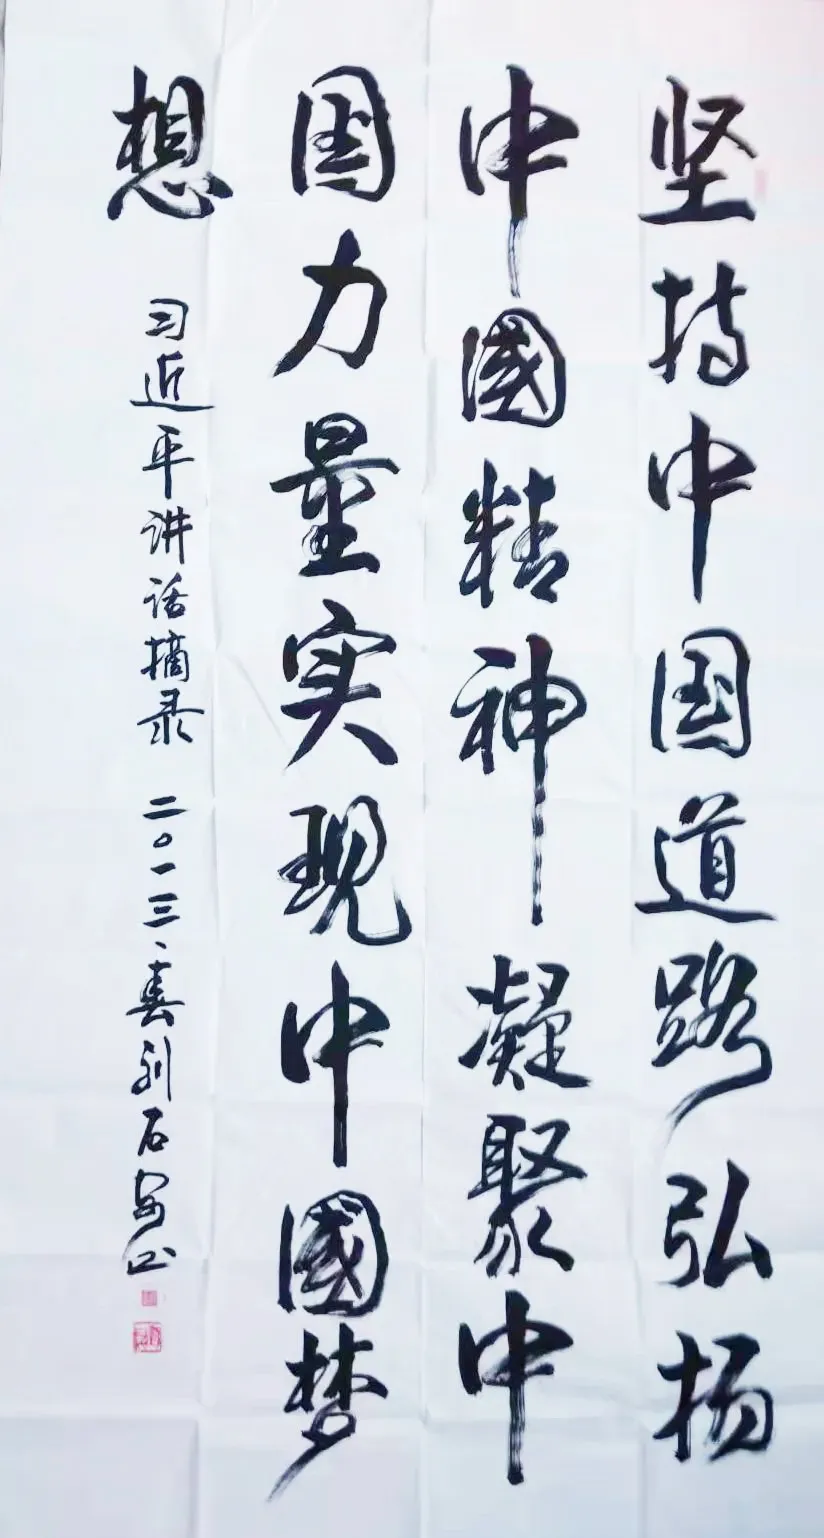 坚持中国道路弘扬
中國精神凝聚中
国力量实现中國梦
想
习近平讲话摘录 二〇一三、春 刘石